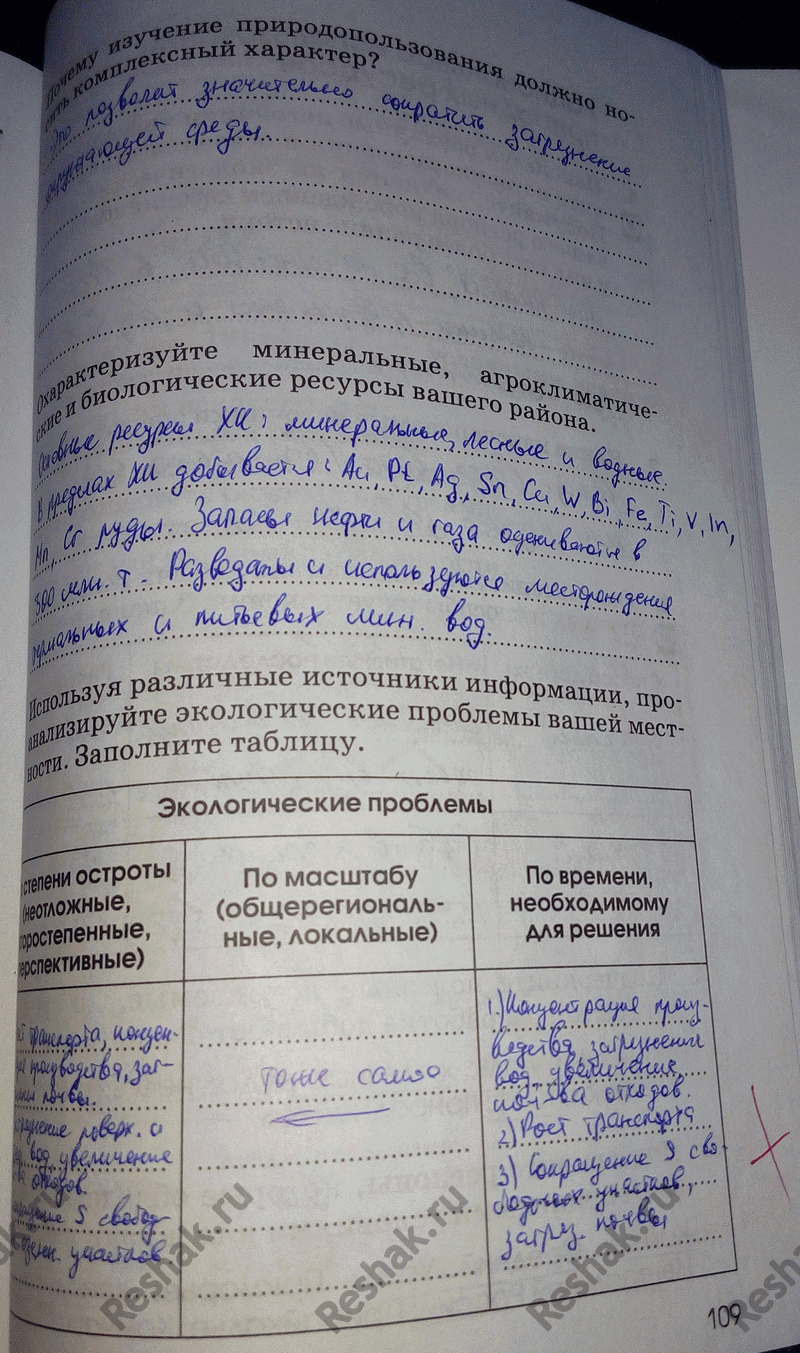 Почему изучение природопользования должно но-
сить комплексный характер?
Это позволит значительно сократить загрязнение
окружающей среды.
Охарактеризуйте минеральные, агроклиматиче-
ские и биологические ресурсы вашего района.
Основные ресурсы ХК: минеральные, лесные и водные.
В пределах ХК добывается: Au, Pt, Ag, Sn, Cu, W, Bi, Fe, Ti, V, In,
Mn, Cr руды. Запасы нефти и газа оцениваются в
500 млн. т. Разведаны и используются месторождения
термальных и питьевых мин. вод.
Используя различные источники информации, про-
анализируйте экологические проблемы вашей мест-
ности. Заполните таблицу.
Экологические проблемы
степени остроты
(неотложные,
торостепенные,
ерспективные)
По масштабу
(общерегиональ-
ные, локальные)
По времени,
необходимому
для решения
ст транспорта, концен-
производства, заг-
почвы.
поверх. и
вод, увеличение
отходов
S свобод-
участков
тоже самое
1.) Концентрация произ-
водства, загрязнения
вод, увеличение
кол-ва отходов.
2) Рост транспорта
3) Сокращение S сво-
бодных участков,
загряз. почвы
109
Reshak.ru
Reshak.ru
Reshak.ru
Reshak.ru